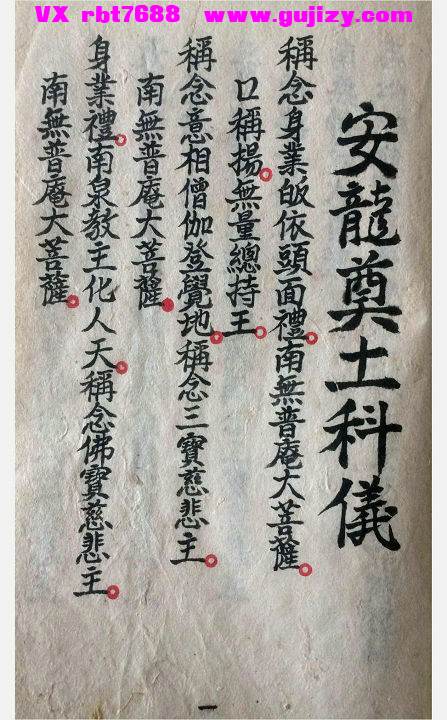 VX rbt7688 www.gujizy.com
安龍奠土科儀
稱念身業皈依頭面禮。南無普庵大菩薩。
口稱揚。無量總持王。
稱念意相僧伽登覺地。稱念三寶慈悲主。
南無普庵大菩薩。
身業禮。南泉教主化人天。稱念佛寶慈悲主。
南無普庵大菩薩。
一